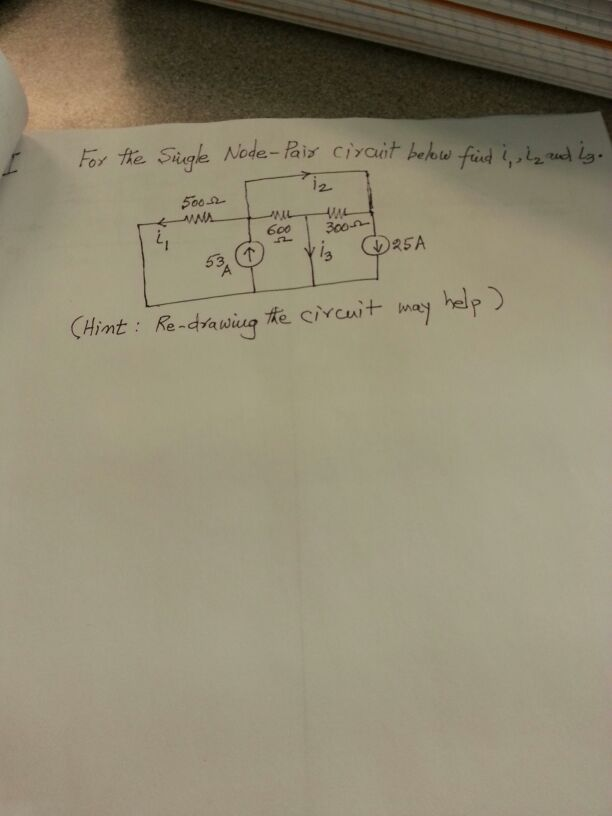 I
For the Single Node-Pair circuit below find i₁, i₂ and i₃.
i₂
500Ω
i₁
600
Ω
300Ω
53
A
i₃
25A
(Hint: Re-drawing the circuit may help)